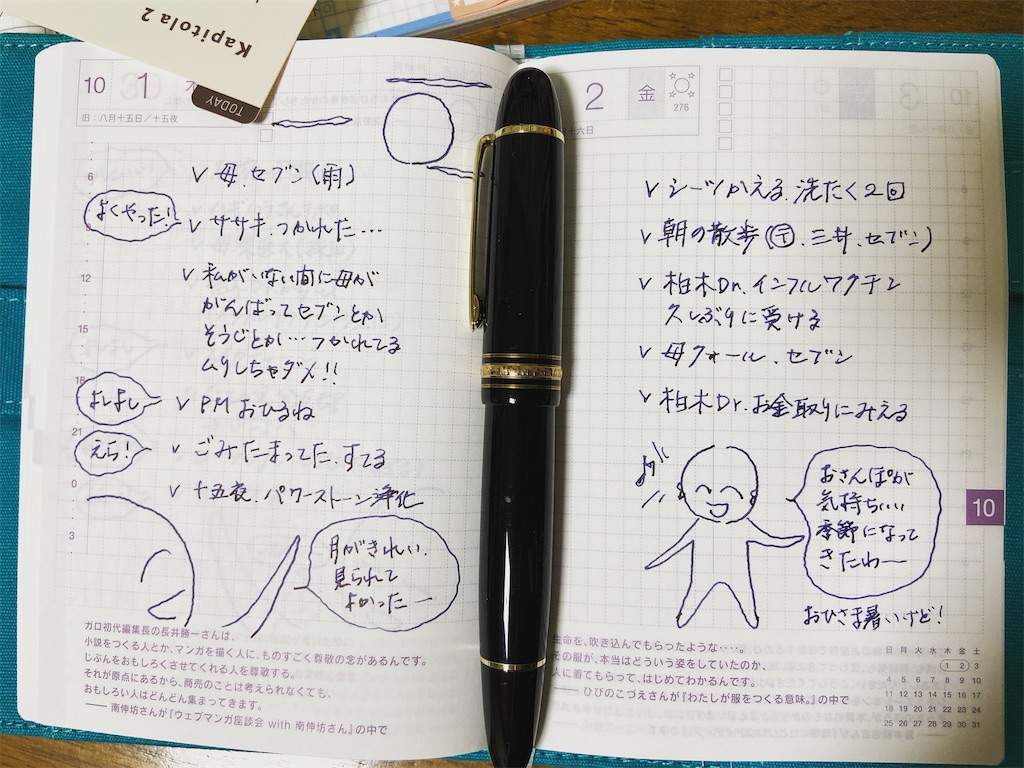 Kapitola 2
TODAY
10 1 木
旧：八月十五日／十五夜
6
12
15
18
21
0
3
v 母.セブン(雨)
よくやった!
v ササキ.つかれた…
v 私がいない間に母が
がんばってセブンとか
そうじとか…つかれてる
ムリしちゃダメ!!
よしよし
v PMおひるね
えら!
v ごみたまってた.すてる
v 十五夜.パワーストーン浄化
月がきれい.
見られて
よかったー
ガロ初代編集長の長井勝一さんは、
小説をつくる人とか、マンガを描く人に、ものすごく尊敬の念があるんです。
じぶんをおもしろくさせてくれる人を尊敬する。
それが原点にあるから、商売のことは考えられなくても、
おもしろい人はどんどん集まってきます。
——南伸坊さんが『ウェブマンガ座談会 with 南伸坊さん』の中で
2 金
276
六日
v シーツかえる.洗たく2回
v 朝の散歩(〒.三井.セブン)
v 柏木Dr.インフルワクチン
久しぶりに受ける
v 母クォール.セブン
v 柏木Dr.お金取りにみえる
おさんぽが
気持ちいい
季節になって
きたわー
おひさま暑いけど!
10
生命を、吹き込んでもらったような‥‥。
その服が、本当はどういう姿をしていたのか、
人に着てもらって、はじめてわかるんです。
——ひびのこづえさんが『わたしが服をつくる意味。』の中で
日 月 火 水 木 金 土
1 2 3
4 5 6 7 8 9 10
11 12 13 14 15 16 17
18 19 20 21 22 23 24
25 26 27 28 29 30 31